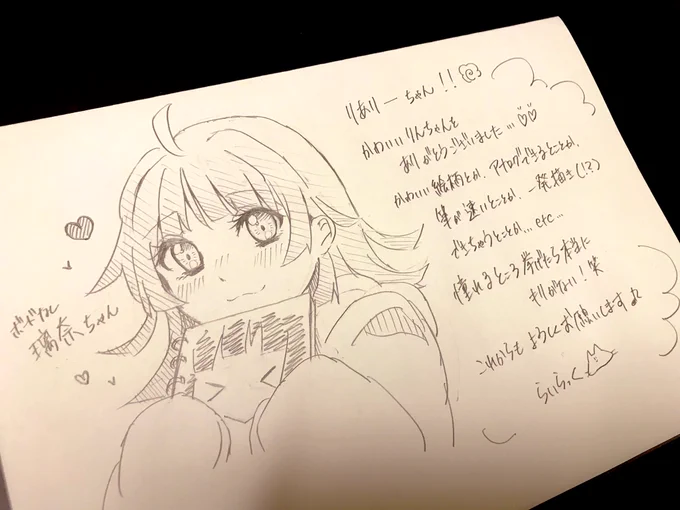 りありーちゃん!!
かわいいりんちゃんを
ありがとうございました…♡♡
かわいい絵柄とか、アナログできるとことか、
筆が速いとことか、一発描き(!?)
できちゃうとことか…etc…
憧れるところ挙げたら本当に
キリがない!笑
これからもよろしくお願いします
らいらっく
ボードの
璃奈ちゃん